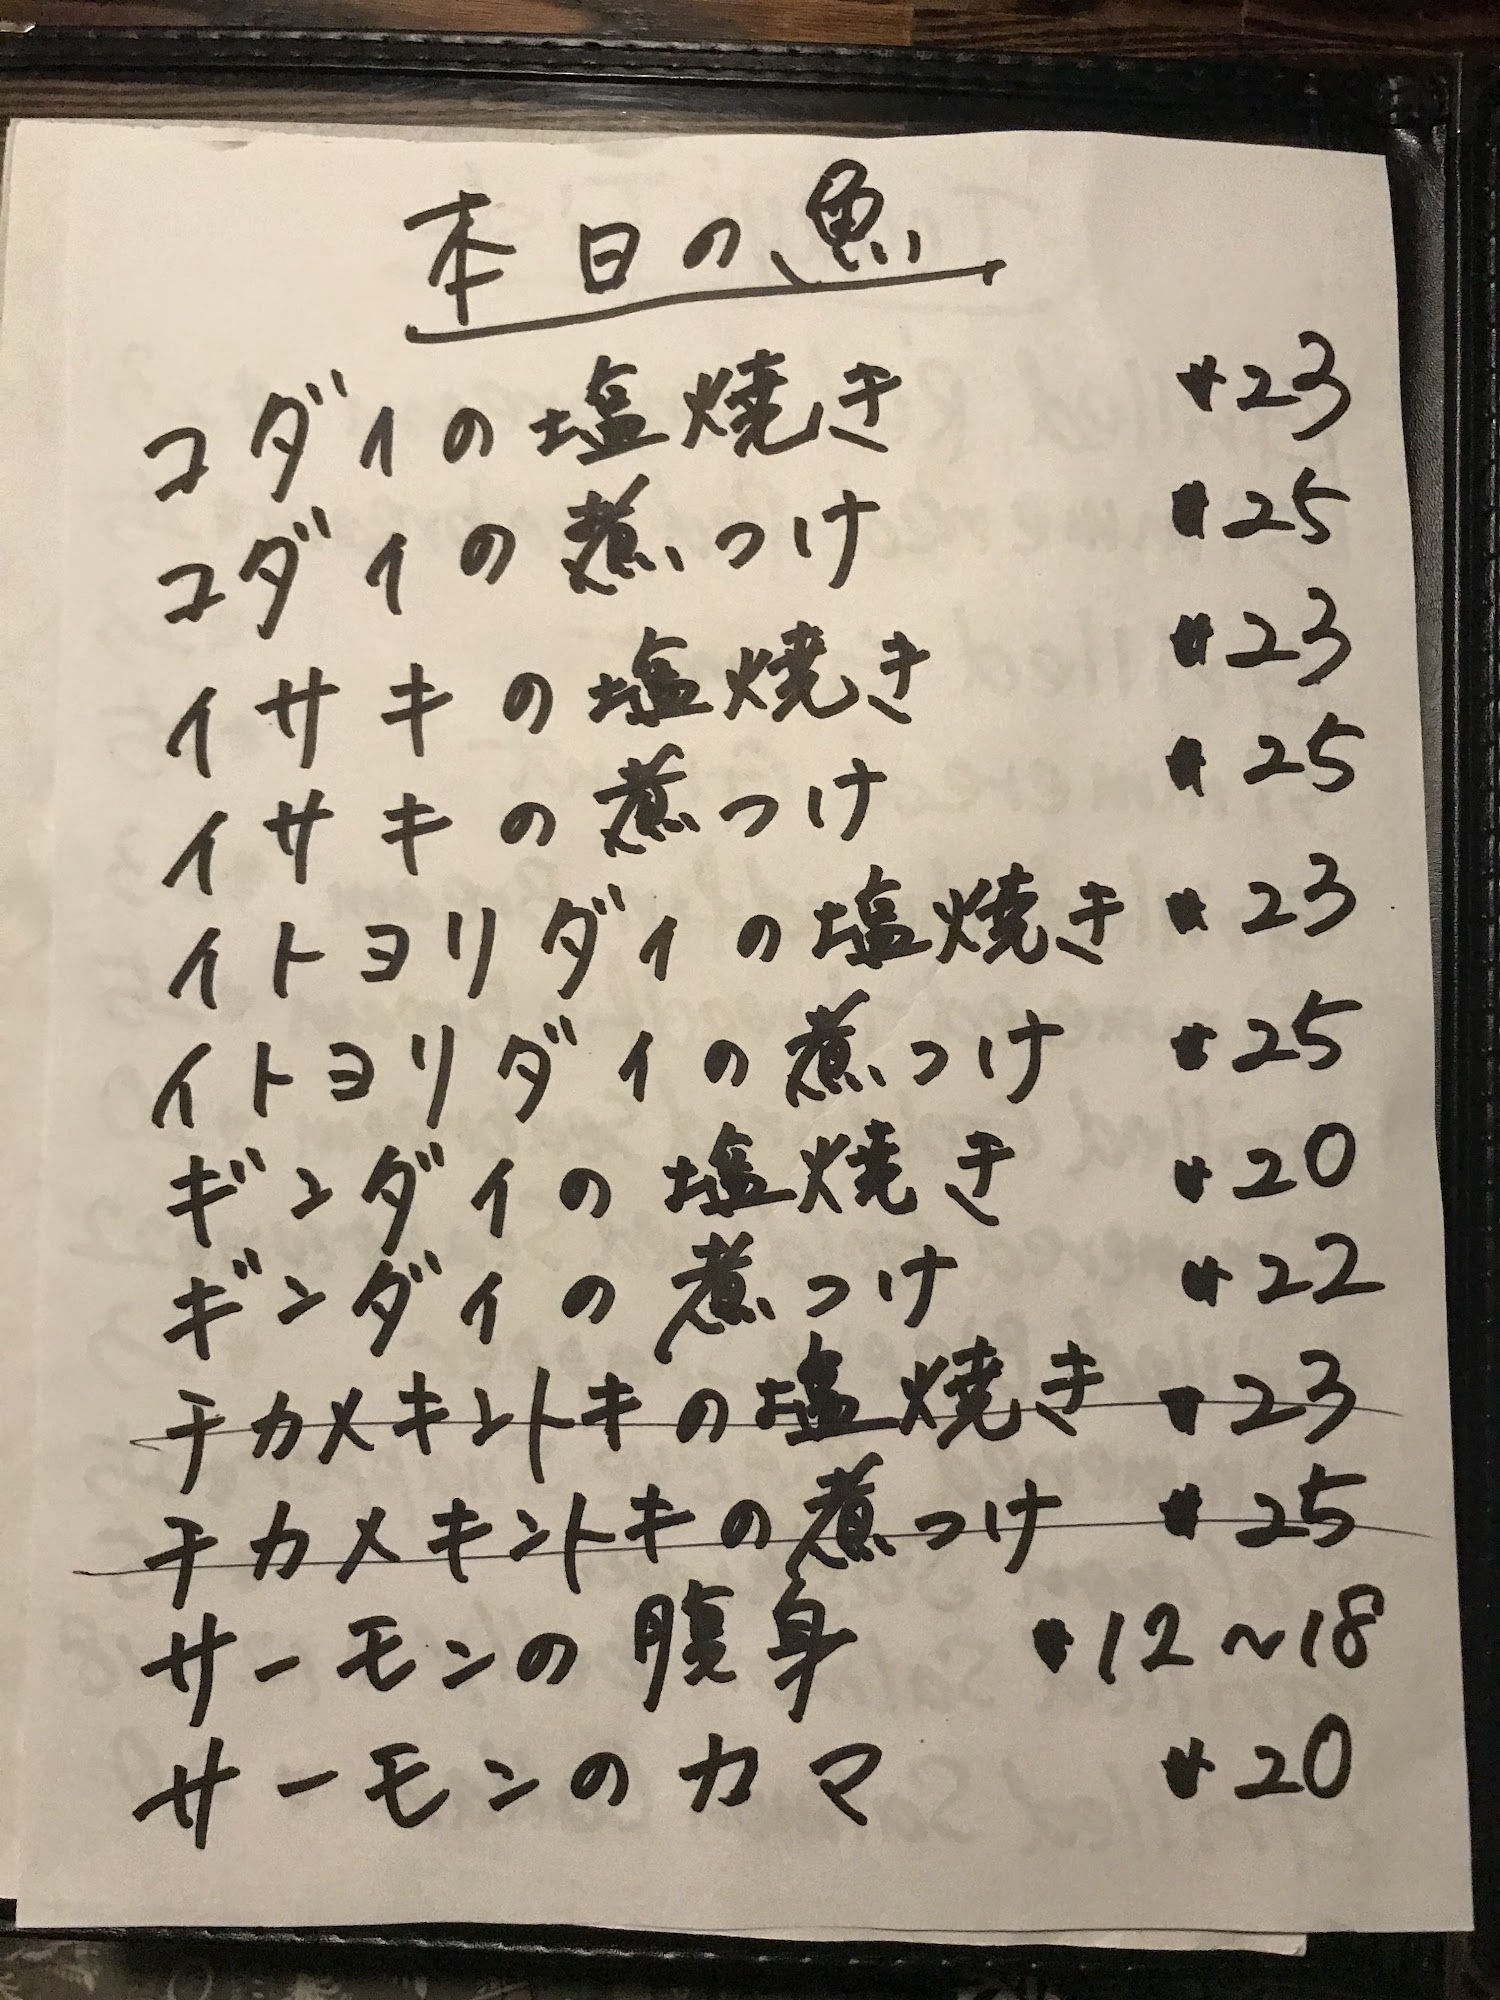 本日の魚
コダイの塩焼き $23
コダイの煮つけ $25
イサキの塩焼き $23
イサキの煮つけ $25
イトヨリダイの塩焼き $23
イトヨリダイの煮つけ $25
ギンダイの塩焼き $20
ギンダイの煮つけ $22
チカメキントキの塩焼き $23
チカメキントキの煮つけ $25
サーモンの腹身 $12~18
サーモンのカマ $20